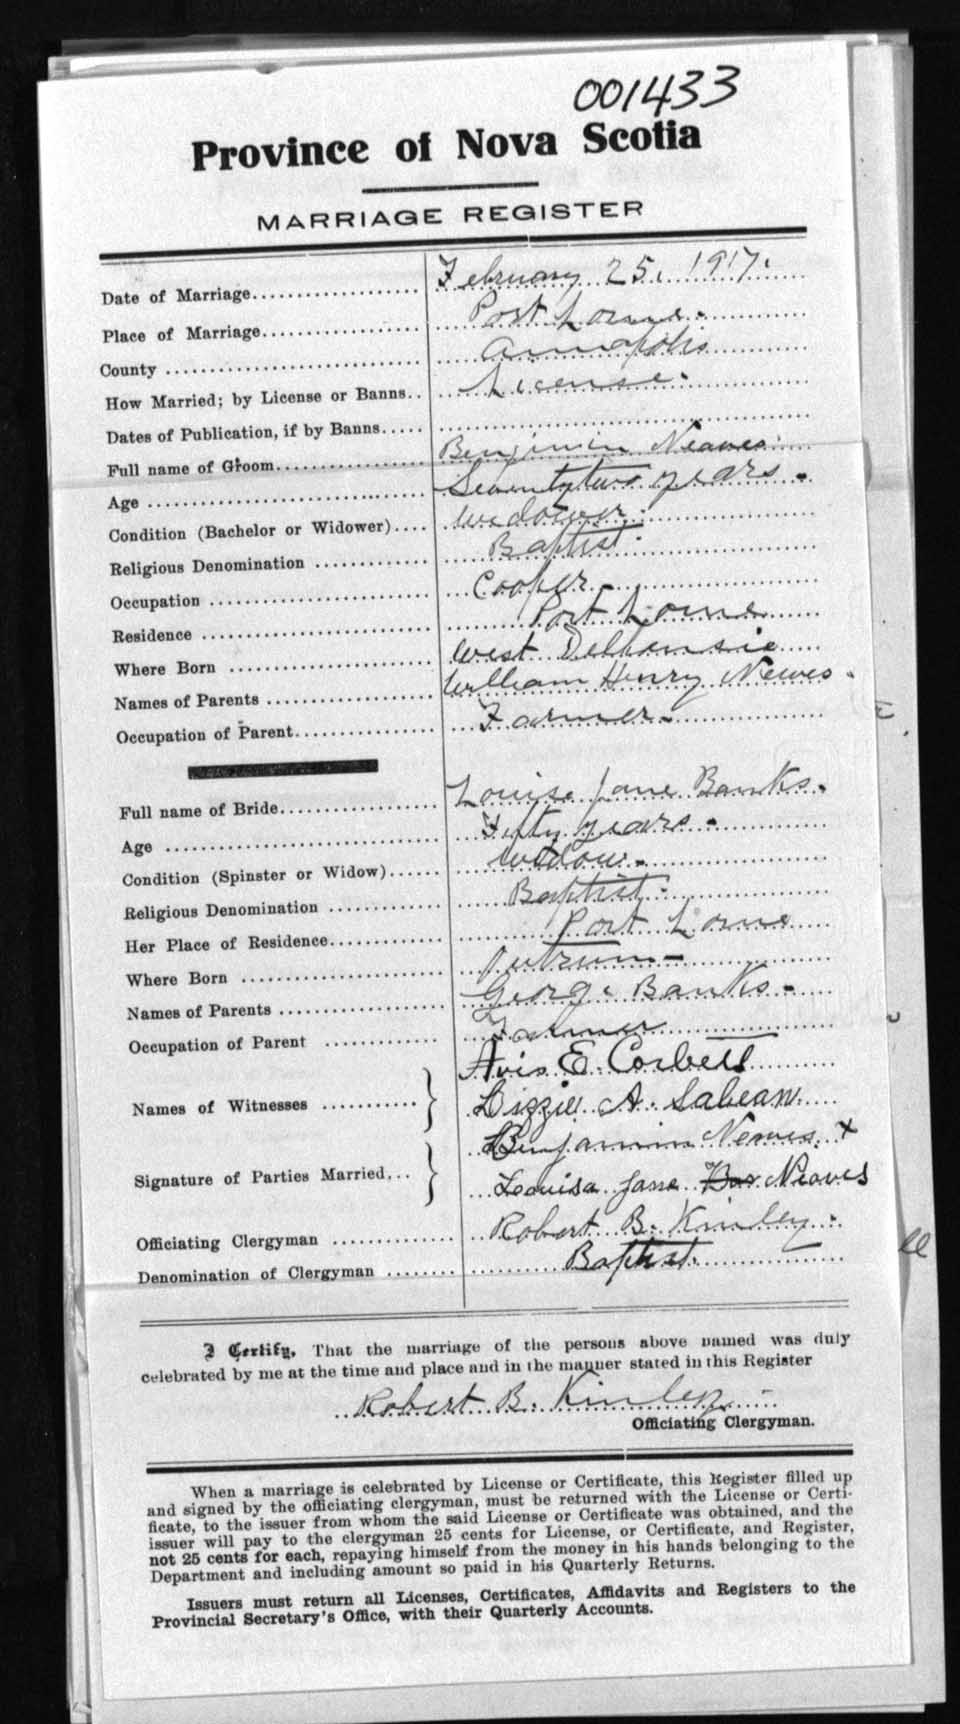 001433
Province of Nova Scotia
MARRIAGE REGISTER
Date of Marriage February 25. 1917.
Place of Marriage Port Lorne.
County Annapolis
How Married; by License or Banns License.
Dates of Publication, if by Banns
Full name of Groom Benjimin Neaves.
Age Seventytwo years.
Condition (Bachelor or Widower) widower.
Religious Denomination Baptist.
Occupation Cooper.
Residence Port Lorne
Where Born West Delhansie
Names of Parents William Henry Newes.
Occupation of Parent Farmer.
Full name of Bride Louise Jane Banks.
Age Fifty years.
Condition (Spinster or Widow) Widow.
Religious Denomination Baptist.
Her Place of Residence Port Lorne
Where Born
Names of Parents George Banks.
Occupation of Parent Farmer
Names of Witnesses } Avis E. Corbett
Lizzie A. Sabean
Signature of Parties Married, } Benjamin Neaves X
Louisa Jane Neaves
Officiating Clergyman Robert B. Kinley.
Denomination of Clergyman Baptist.
I Certify, That the marriage of the persons above named was duly
celebrated by me at the time and place and in the manner stated in this Register
Robert B. Kinley.
Officiating Clergyman.
When a marriage is celebrated by License or Certificate, this Register filled up
and signed by the officiating clergyman, must be returned with the License or Certi-
ficate, to the issuer from whom the said License or Certificate was obtained, and the
issuer will pay to the clergyman 25 cents for License, or Certificate, and Register,
not 25 cents for each, repaying himself from the money in his hands belonging to the
Department and including amount so paid in his Quarterly Returns.
Issuers must return all Licenses, Certificates, Affidavits and Registers to the
Provincial Secretary's Office, with their Quarterly Accounts.